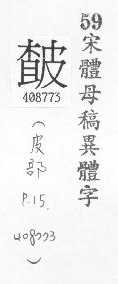 59宋體母稿異體字
408773
(皮部 P.15. 408773)